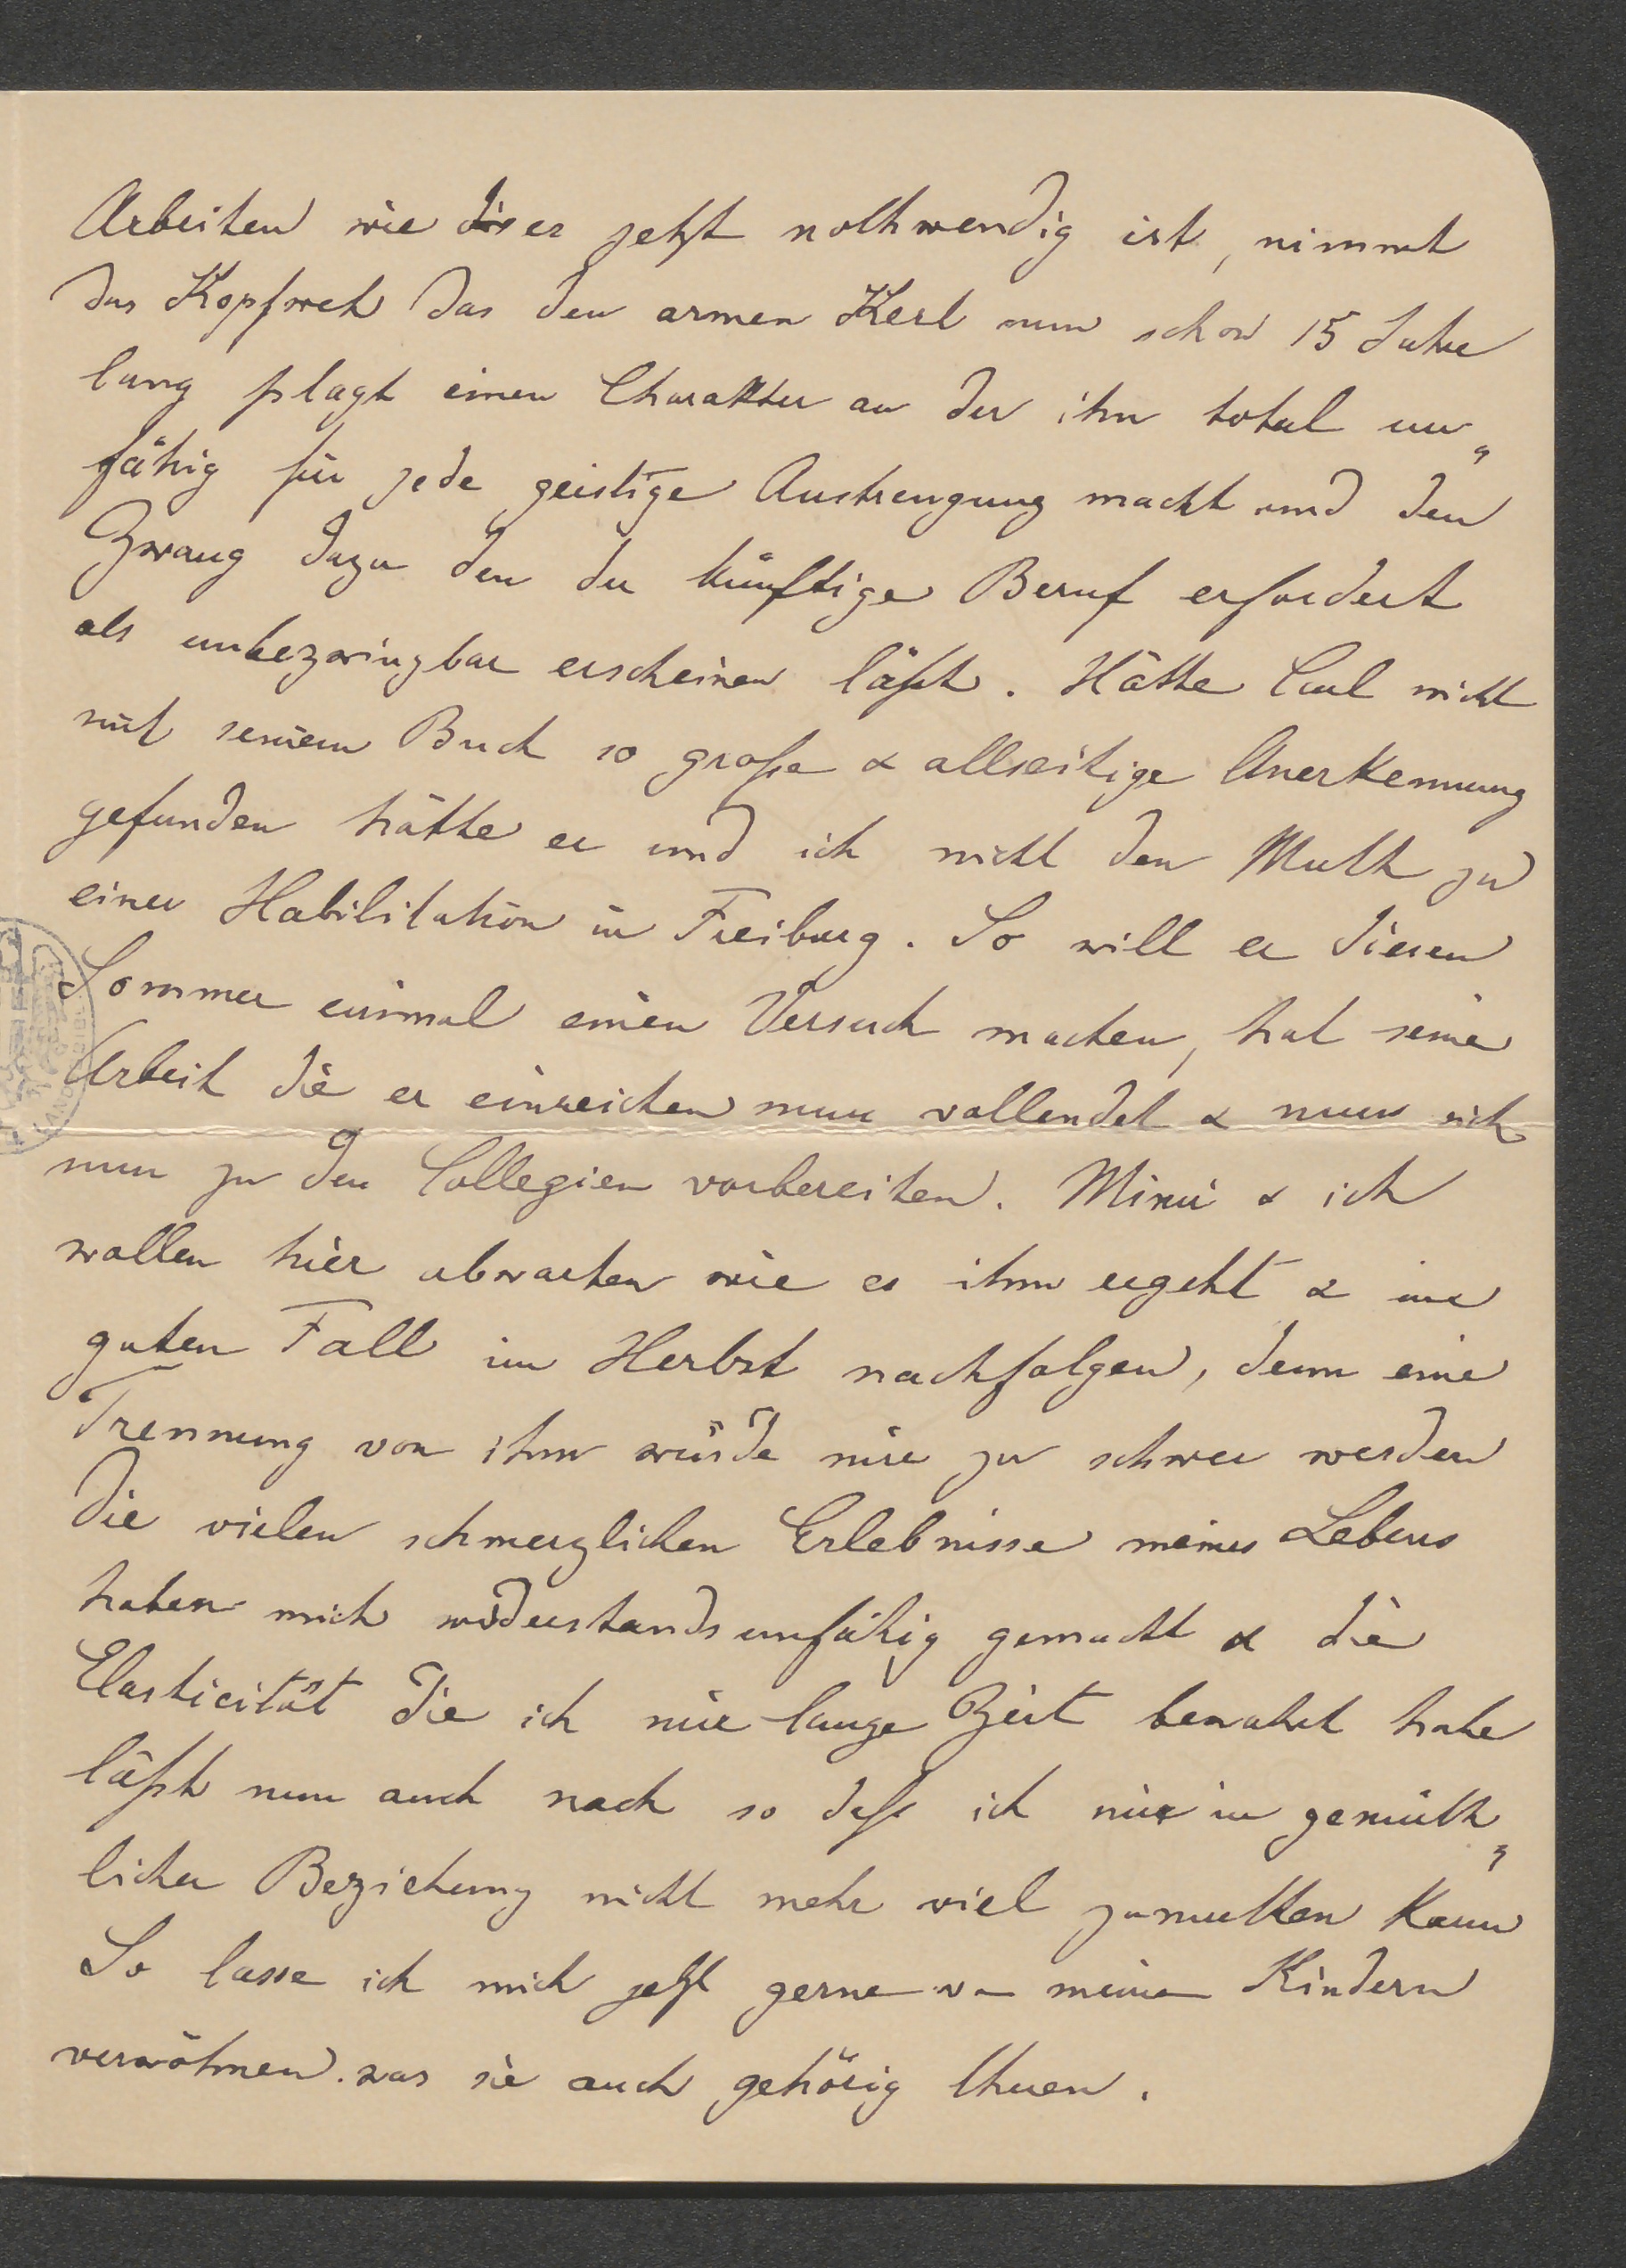 Arbeiten wie dieser jetzt nothwendig ist, nimmt
das Kopfweh das den armen Kerl nun schon 15 Jahre
lang plagt einen Charakter an der ihn total un„
fähig für jede geistige Anstrengung macht und den
Zwang dazu den der künftige Beruf erfordert
als unbezwingbar erscheinen läßt. Hätte Carl nicht
mit seinem Buch so große & allseitige Anerkennung
gefunden hätte er und ich nicht den Muth zu
einer Habilitation in Freiburg. So will er diesen
Sommer einmal einen Versuch machen, hat seine
Arbeit die er einreichen muss vollendet & muss sich
nun zu den Collegien vorbereiten. Mimi & ich
wollen hier abwarten wie es ihm ergeht & im
guten Fall im Herbst nachfolgen, denn eine
Trennung von ihm würde mir zu schwer werden
Die vielen schmerzlichen Erlebnisse meines Lebens
haben mich widerstandsunfähig gemacht & die
Elasticität die ich mir lange Zeit bewahrt habe
läßt nun auch nach so daß ich mir in gemüth„
licher Beziehung nicht mehr viel zumuthen kann
So lasse ich mich jetzt gerne von meinen Kindern
verwöhnen. was sie auch gehörig thuen.